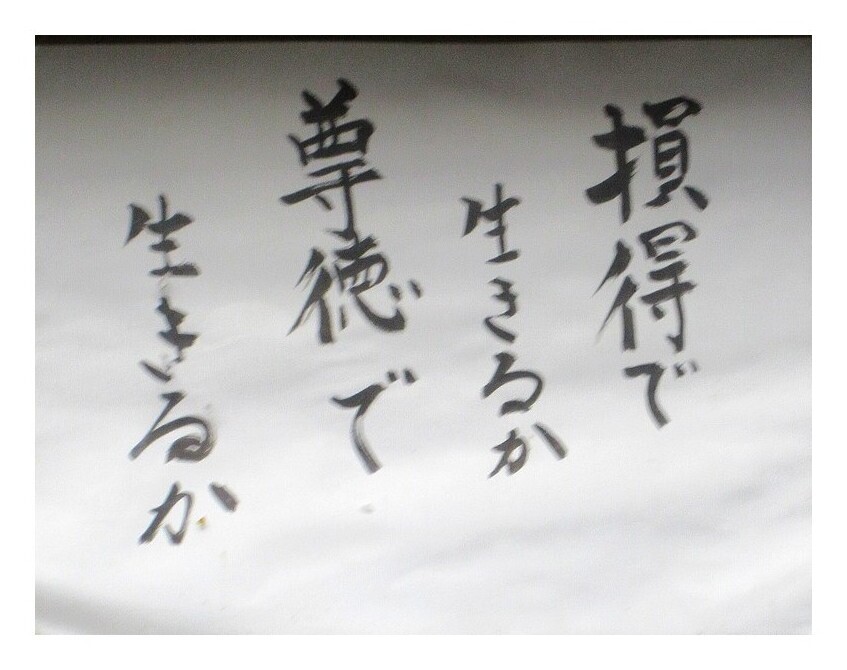 損得で
生きるか
尊徳で
生きるか